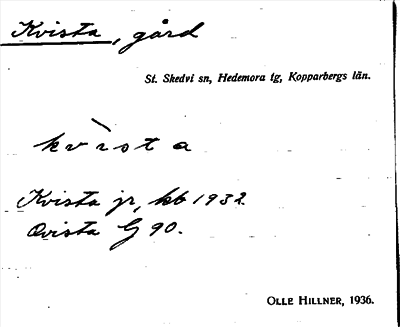 Kvista, gård
St. Skedvi sn, Hedemora tg, Kopparbergs län.
kvìsta
Kvista jr, kb 1932.
Qvista G 90.
OLLE HILLNER, 1936.